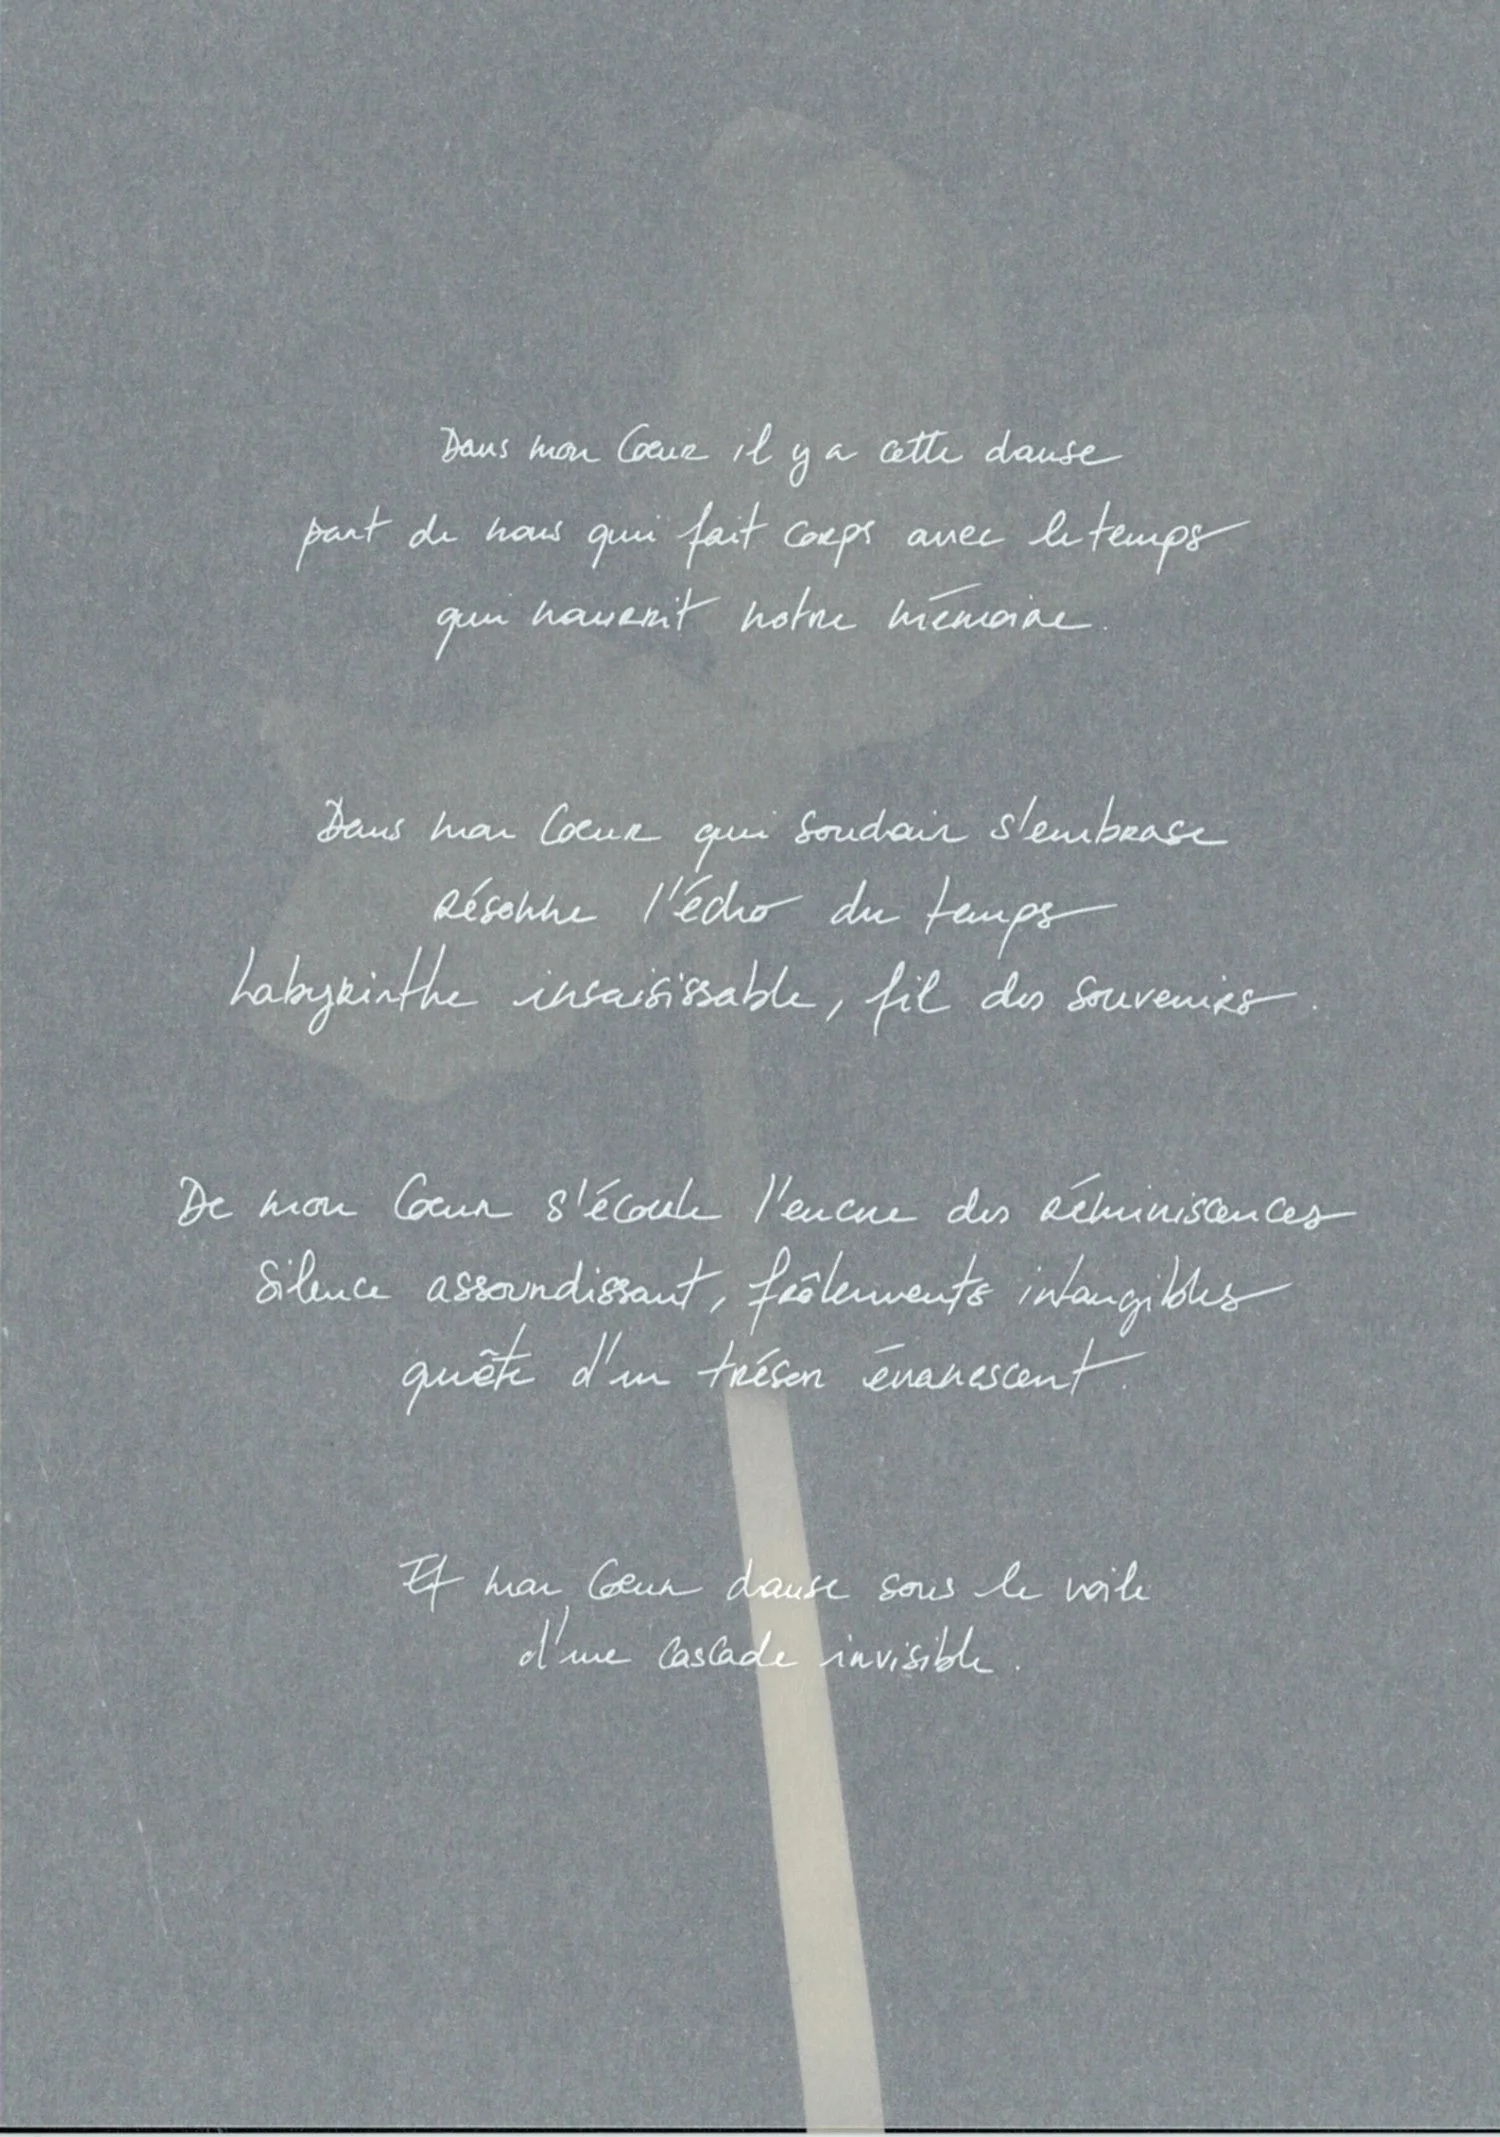 Dans mon Cœur il y a cette danse
part de nous qui fait corps avec le temps
qui nourrit notre mémoire.
Dans mon Cœur qui soudain s'embrase
résonne l'écho du temps
Labyrinthe insaisissable, fil des souvenirs.
De mon Cœur s'écoule l'encre des réminiscences
Silence assourdissant, frôlements intangibles
quête d'un trésor évanescent.
Et mon Cœur danse sous le voile
d'une cascade invisible.